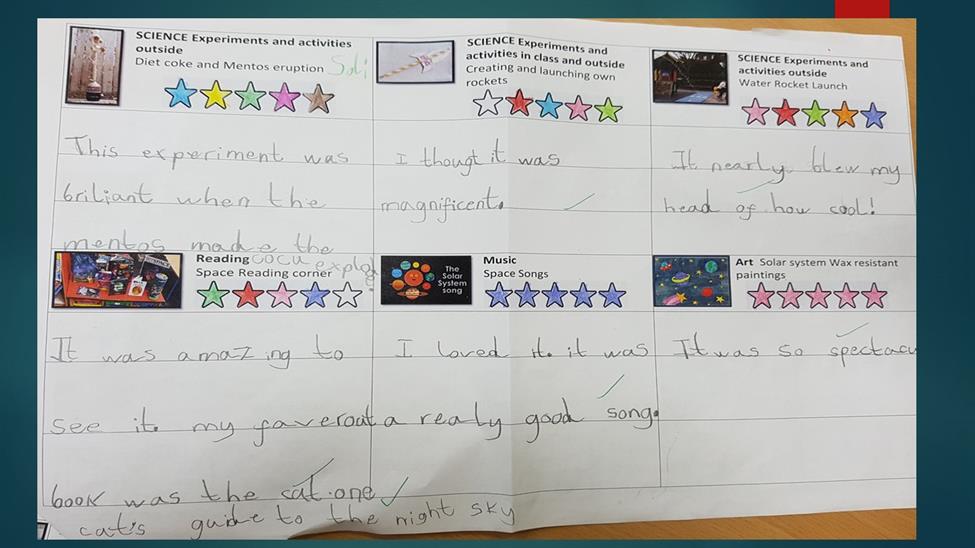 SCIENCE Experiments and activities
outside
Diet coke and Mentos eruption
This experiment was
briliant when the
mentos made the
cocu explod
SCIENCE Experiments and
activities in class and outside
Creating and launching own
rockets
I thougt it was
magnificent.
SCIENCE Experiments and
activities outside
Water Rocket Launch
It nearly blew my
head of how cool!
Reading
Space Reading corner
It was amazing to
see it. my faverout
book was the cat one
cat's guide to the night sky
Music
Space Songs
The
Solar
System
song
I loved it. it was
a realy good song.
Art Solar system Wax resistant
paintings
It was so spectacu